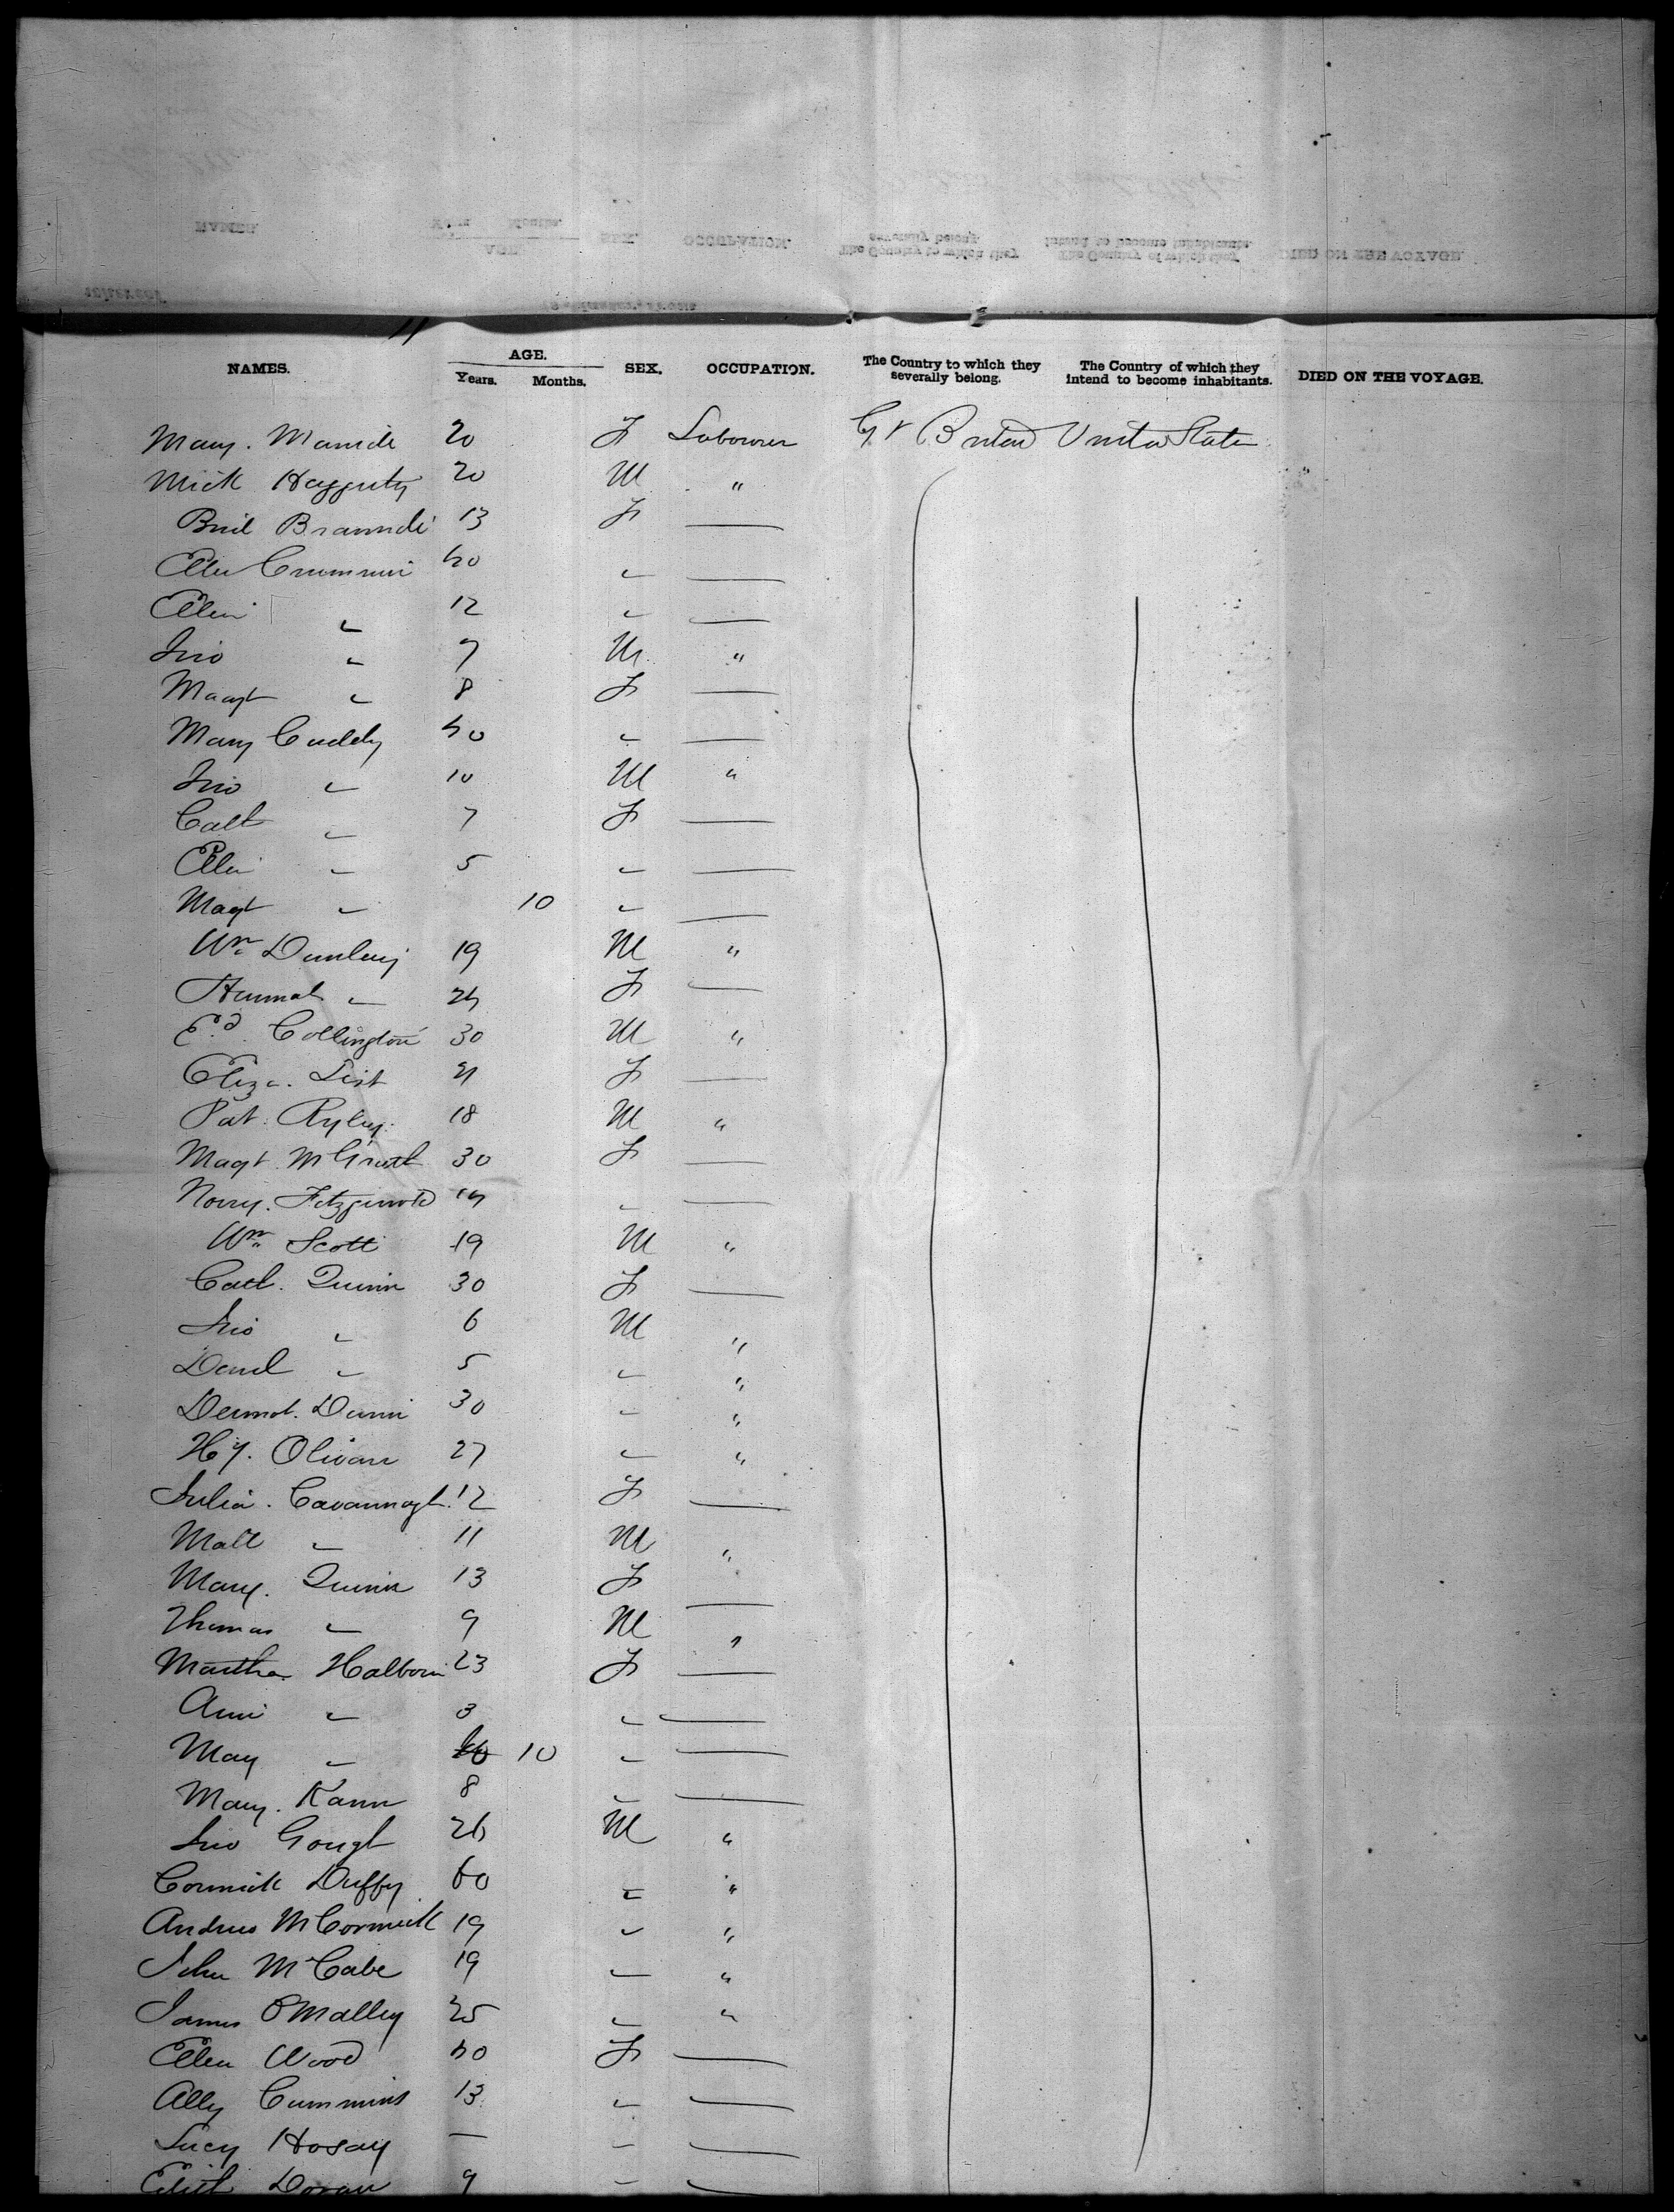 NAMES. AGE. SEX. OCCUPATION. The Country to which they severally belong. The Country of which they intend to become inhabitants. DIED ON THE VOYAGE.
Years. Months.
Mary. 20 F Labourer Gt Britain United States
Mick Haggerty 20 M "
13 F —
Ellen 40 " —
Ellen " 12 " —
Jno " 7 M "
Magt " 8 F —
Mary Cuddy 40 " —
Jno " 10 M "
Cath " 7 F —
Ellen " 5 " —
Magt " 10 " —
Wm Dunleuy 19 M "
Hannah " 24 F —
Ed. Collington 30 M "
Eliza. List 21 F —
Pat. Ryley. 18 M "
Magt McGrath 30 F —
Fitzgerald 19 " —
Wm Scott 19 M "
Cath. Quinn 30 F —
Jno " 6 M "
" 5 " "
Dermot. Dunn 30 " "
Hy. 27 " "
Julia. Cavannagh. 12 F —
Matt " 11 M "
Mary. Quinn 13 F —
Thomas " 9 M "
Martha 23 F —
Ann " 3 " —
May " 10 " —
Mary. 8 " —
Jno Gough 26 M "
Cormick Duffy 60 " "
Andrew McCormick 19 " "
John McCabe 19 " "
James O'Malley 25 " "
Ellen Wood 40 F —
Ally Cummins 13 " —
Lucy Hosay — " —
Edith Doran 9 " —